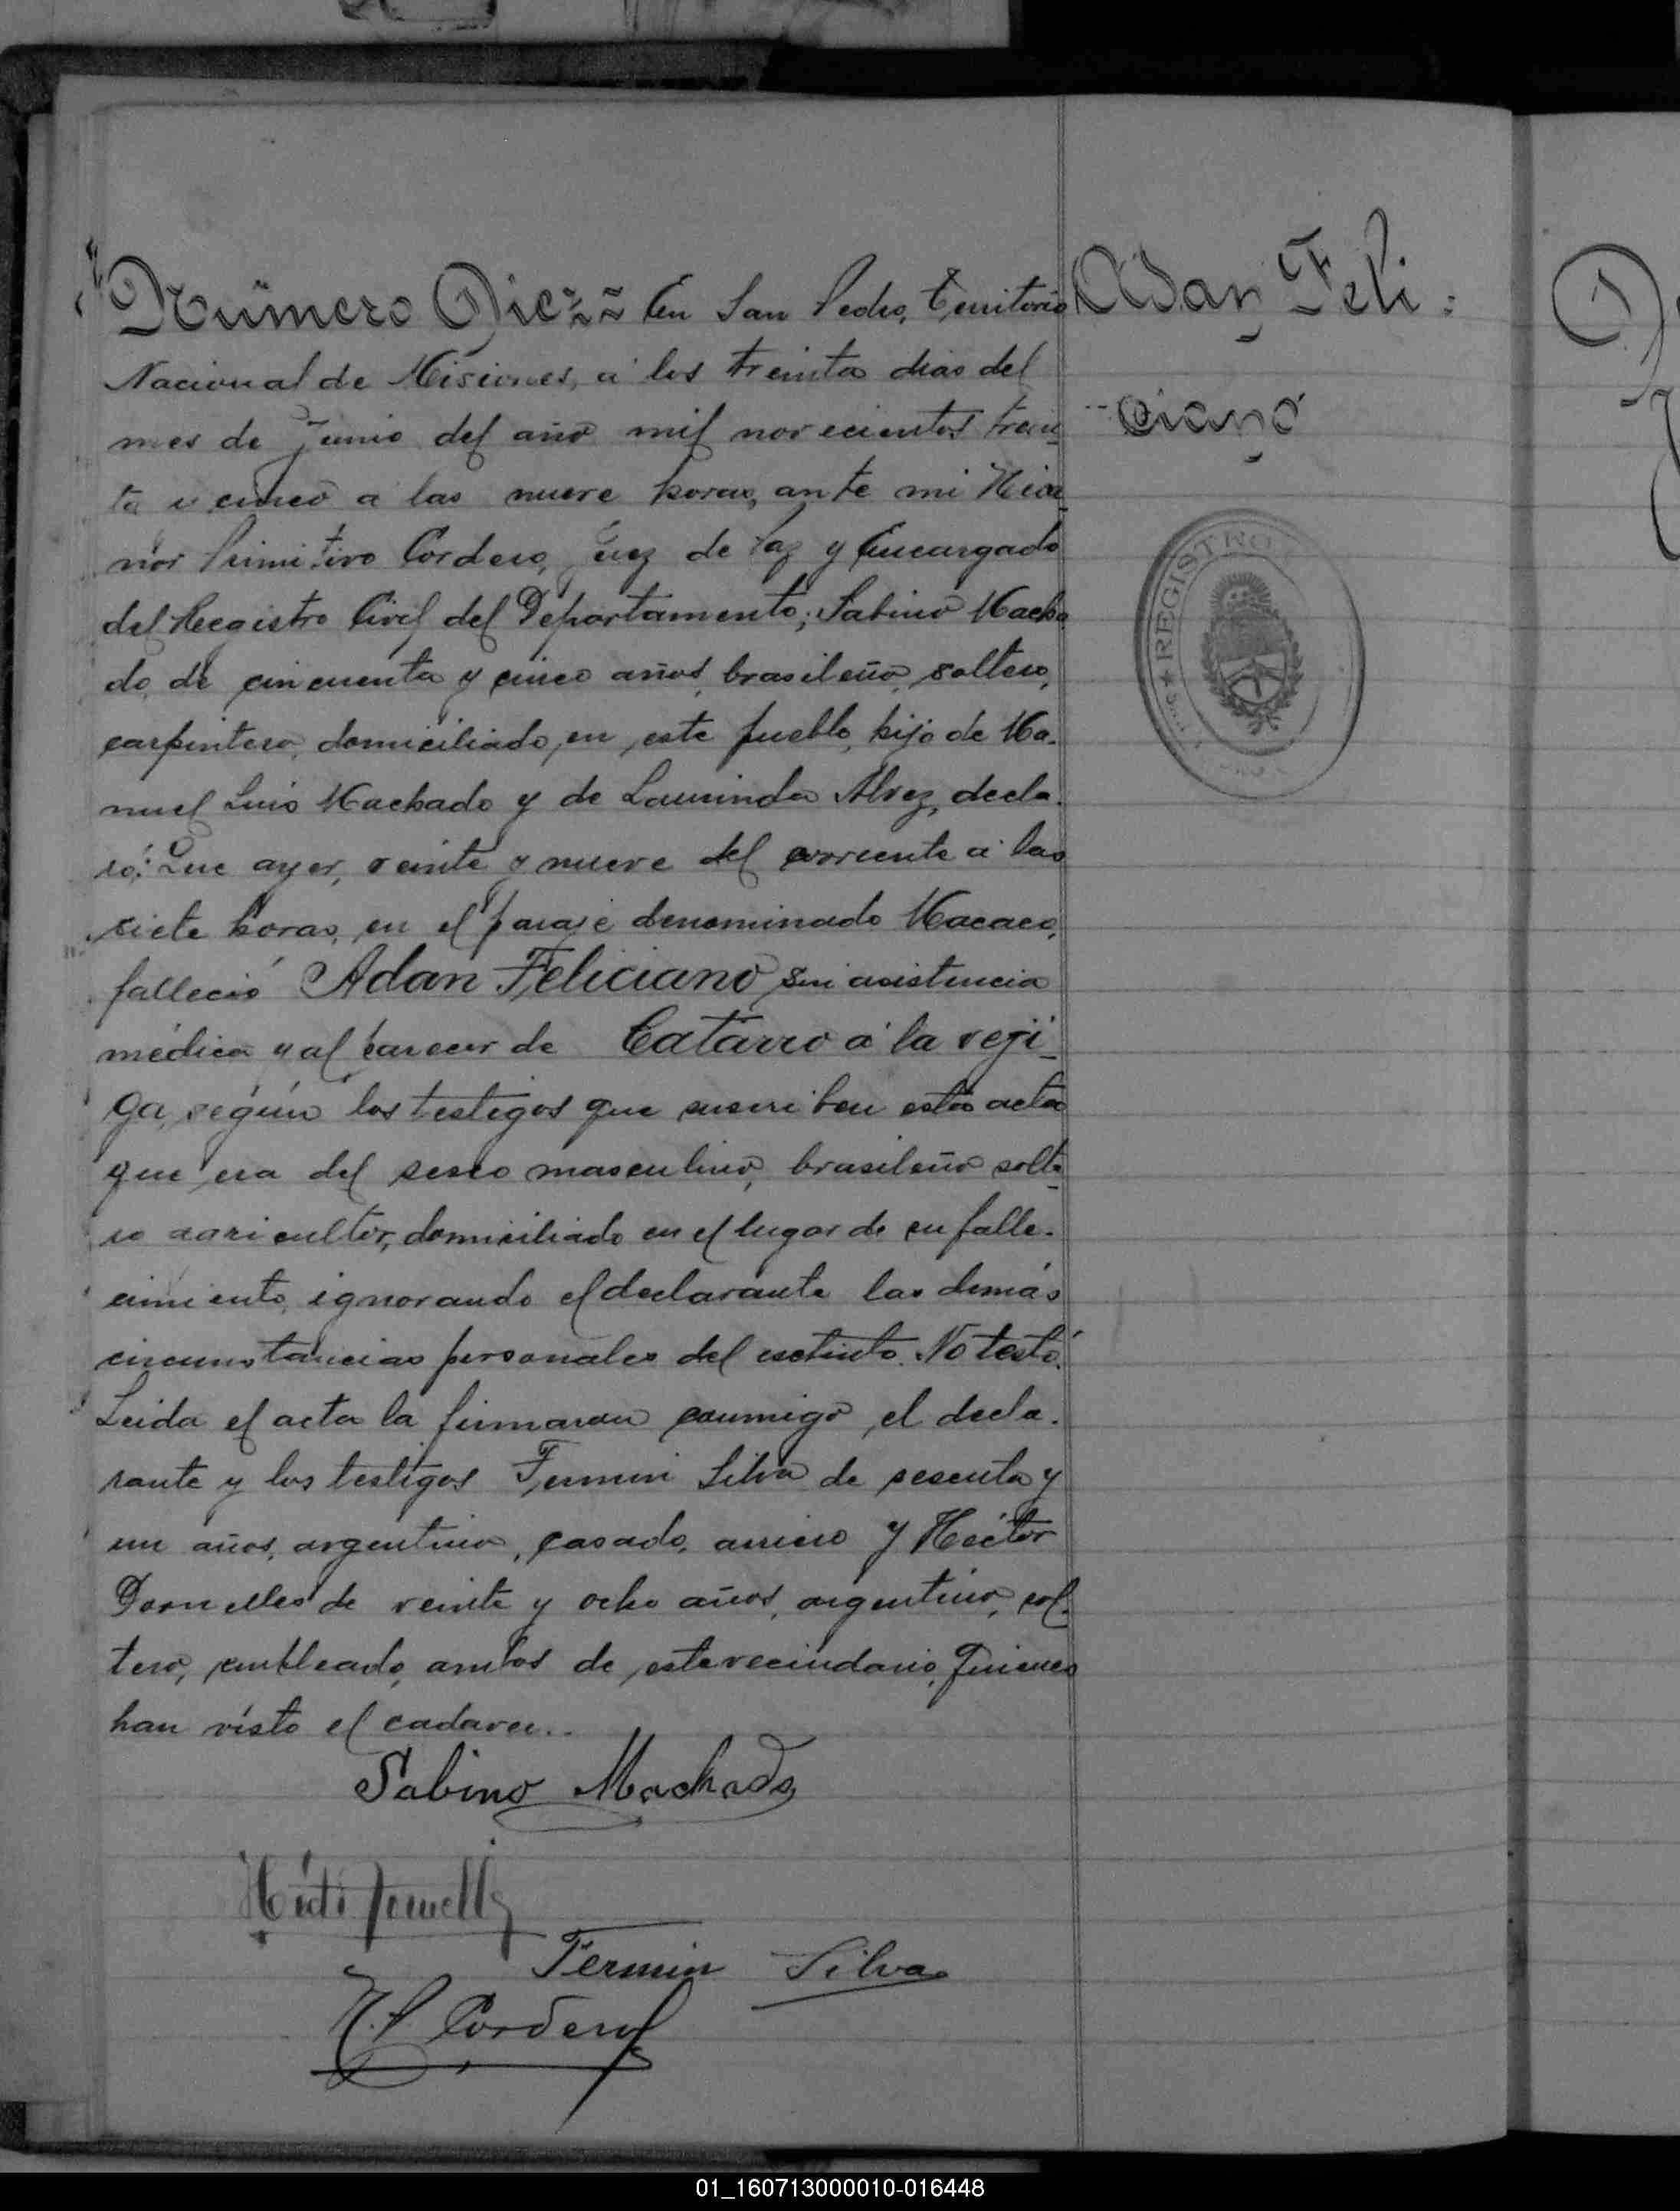 Número Diez En San Pedro, Territorio
Nacional de Misiones, a los treinta dias del
mes de Junio del año mil novecientos trein-
ta y cinco a las nueve horas, ante mi Nica-
nor Primitivo Cordero, Juez de Paz y Encargado
del Reegistro Civil del Departamento; Sabino Macha-
do, de cincuenta y cinco años, brasileño, soltero,
carpintero, domiciliado, en este pueblo, hijo de Ma-
nuel Luis Machado y de Laurinda Alvez, decla-
ró: Que ayer, veinte y nueve del corriente a las
siete horas, en el paraje denominado Macaco,
falleció Adan Feliciano sin asistencia
médica y al parecer de Catárro á la veji-
ga, según los testigos que suscriben esta acta
que era del secso masculino, brasileño solte-
ro agricultor, domiciliado en el lugar de su falle-
cimiento, ignorando el declarante las demás
circunstancias personales del esctinto. No testó.
Leida el acta la firmaron conmigo, el decla-
rante y los testigos Fermin Silva de sesenta y
un años, argentino, casado, arriero y Héctor
Dornelles de veinte y ocho años, argentino, sol-
tero, empleado, ambos de este vecindario, quienes
han visto el cadaver..
Sabino Machado
Fermin Silva
N. P. Cordero
Adan Feli:
ciano
REGISTRO